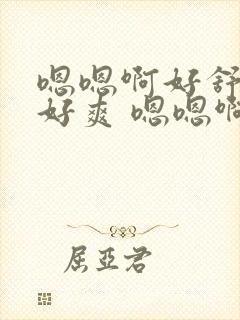 嗯嗯啊好舒
好爽 嗯嗯啊
屈亞君